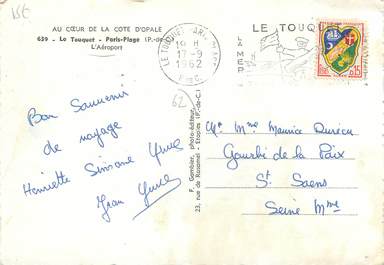 15€
AU CŒUR DE LA COTE D'OPALE
639 - Le Touquet - Paris-Plage (P.-de-
L'Aéroport
LE TOUQUET-PARIS-PLAGE
19 H
17-9
1962
P. DE C.
LE TOUQU
LA MER
0,15
62
Bon Souvenir
de voyage
Henriette Simone
Jean
F. Gambier, photo-éditeur,
23, rue de Rosamel - Etaples (P.-de-C.)
Mr Mme Maurice
de la Paix
St Saens
Seine Mme